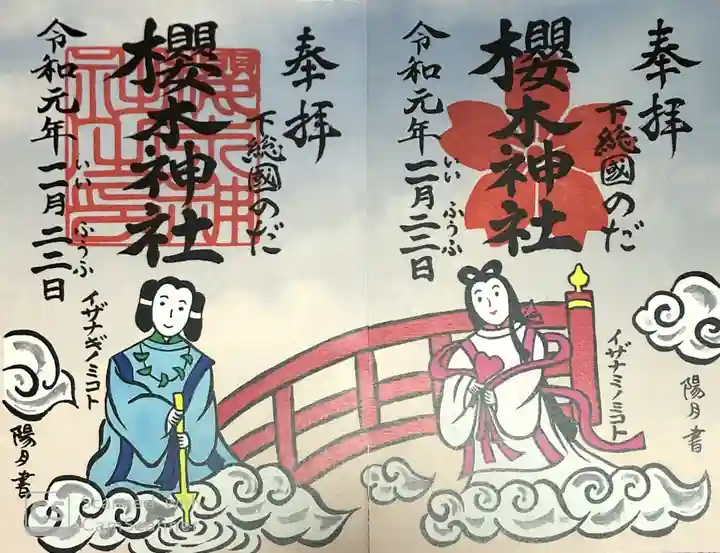 奉拝
下総國のだ
櫻木神社
令和元年一一月二二日
いい ふうふ
イザナミノミコト
陽月書
奉拝
下総國のだ
櫻木神社
令和元年一一月二二日
いい ふうふ
イザナギノミコト
陽月書
CS Scanned by
CamScanner